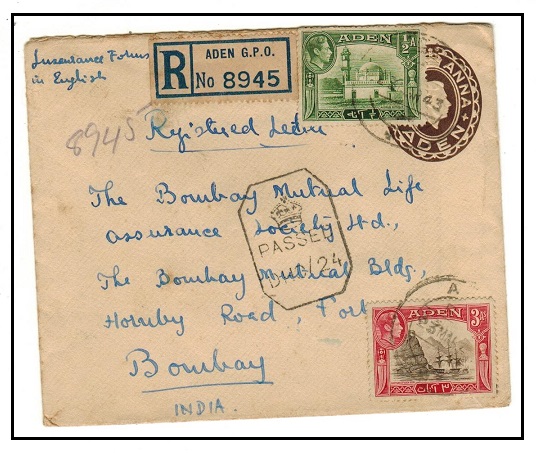 Insurance Forms
in English
R
ADEN G.P.O.
No 8945
½A
ADEN
ANNA
ADEN
8945
Registered Letter
The Bombay Mutual Life
assurance Society Ltd.,
The Bombay Mutual Bldg.,
Hornby Road, Fort
Bombay
INDIA.
PASSED
DHB/24
ADEN
3 AS